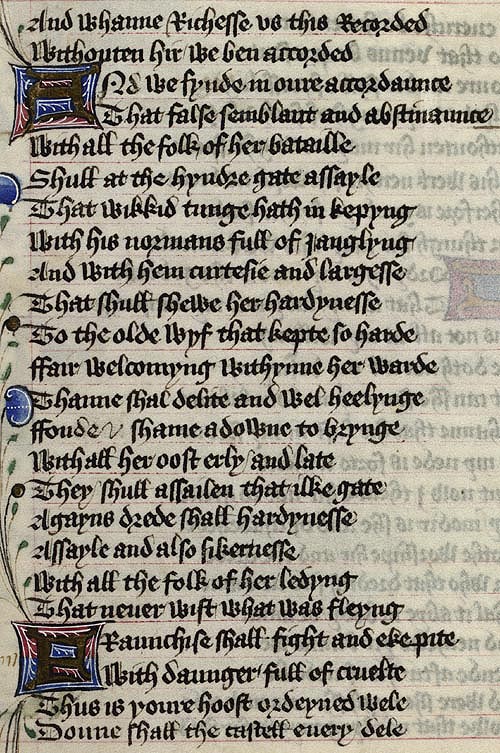 And whanne Richesse vs this Recorded
Withouten hir we ben accorded
And we fynde in oure accordaunce
That false semblant and abstinaunce
With all the folk of her bataille
Shull at the hyndre gate assayle
That wikkid tunge hath in kepyng
With his normans full of Janglyng
And with hem curtesie and largesse
That shull shewe her hardynesse
To the olde wyf that kepte so harde
ffair welcomyng withynne her warde
Thanne shal delite and wel heelynge
ffonde shame adowne to brynge
With all her oost erly and late
They shull assailen that ilke gate
Agayns drede shall hardynesse
Assayle and also sikernesse
With all the folk of her ledyng
That neuer wist what was fleyng
Fraunchise shall fight and eke pite
With daunger full of cruelte
Thus is youre hoost ordeyned wele
Doune shall the castell euery dele